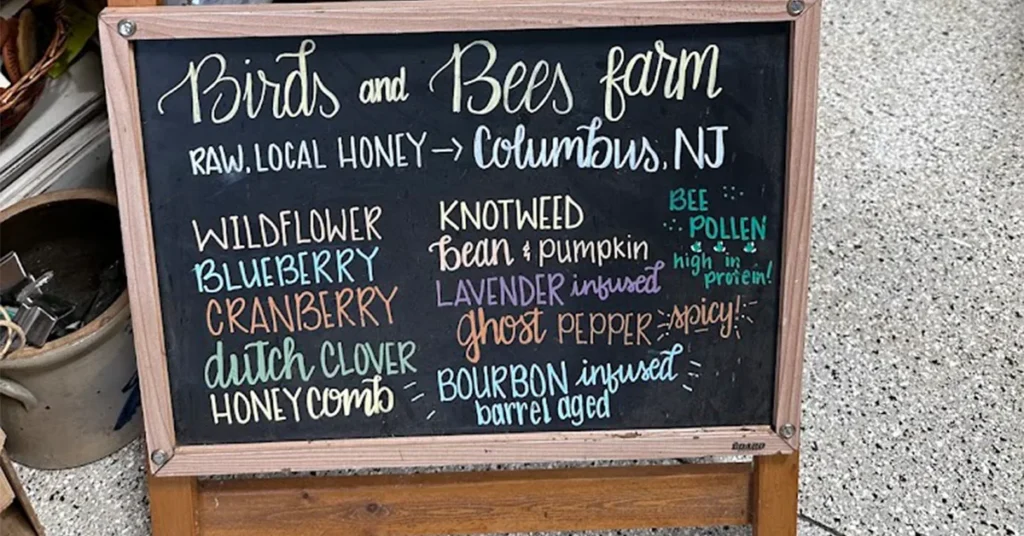 Birds and Bees farm
RAW, LOCAL HONEY → Columbus, NJ
WILDFLOWER
BLUEBERRY
CRANBERRY
dutch CLOVER
HONEY comb
KNOTWEED
bean & pumpkin
LAVENDER infused
ghost PEPPER spicy!
BOURBON infused
barrel aged
BEE
POLLEN
high in
protein!
BOARD